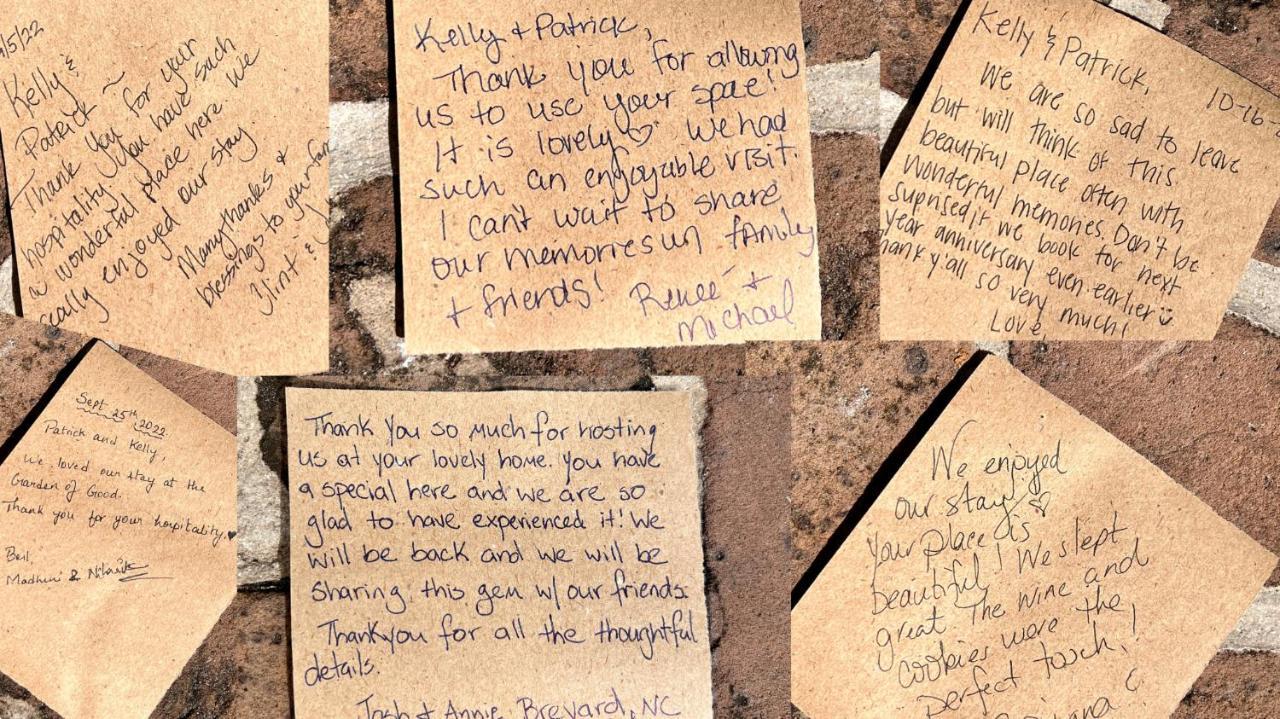 /5/22
Kelly &
Patrick ~
Thank you for your
hospitality. You have such
a wonderful place here. We
really enjoyed our stay
Many thanks &
blessings to your fam
Kelly + Patrick,
Thank you for allowing
us to use your space!
It is lovely ♡ We had
such an enjoyable visit.
I can't wait to share
our memories w/ family
+ friends!
Renee +
Michael
Kelly & Patrick,
10-16-
We are so sad to leave
but will think of this
beautiful place often with
wonderful memories. Don't be
suprised if we book for next
year anniversary even earlier ☺
hank y'all so very much!
Love
Sept 25th 2022
Patrick and Kelly,
We loved our stay at the
Garden of Good.
Thank you for your hospitality. ♥
Best,
Madhuri &
Thank you so much for hosting
us at your lovely home. You have
a special here and we are so
glad to have experienced it! We
will be back and we will be
sharing this gem w/ our friends.
Thankyou for all the thoughtful
details.
Josh & Annie Brevard, NC
We enjoyed
our stay ♡
Your place is
beautiful! We slept
great. The wine and
cookies were the
perfect touch!